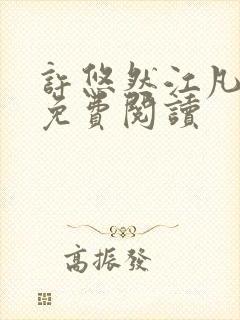 許悠然江凡
免費閱讀
高振發